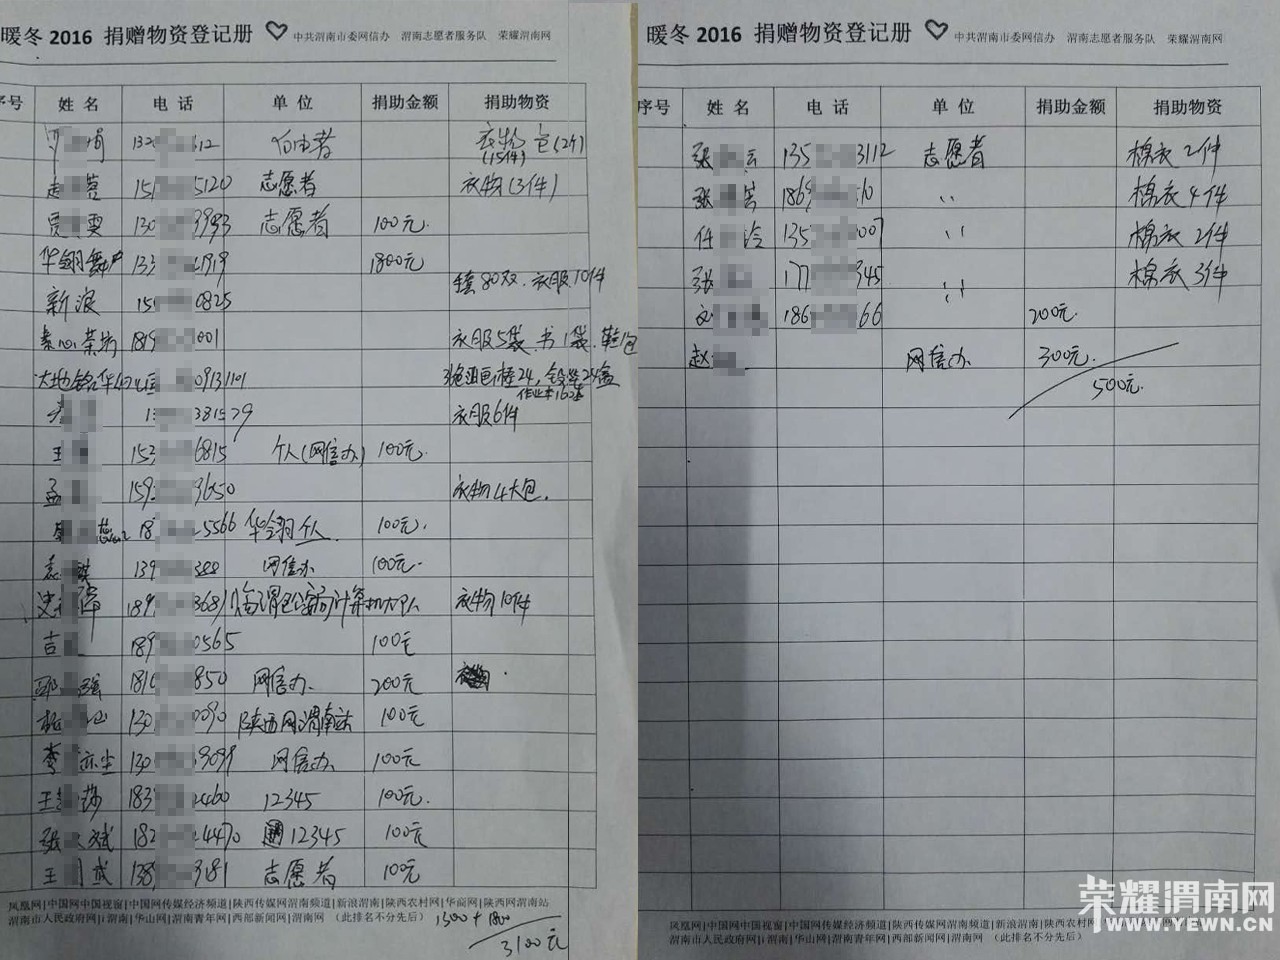 暖冬 2016 捐赠物资登记册 中共渭南市委网信办 渭南志愿者服务队 荣耀渭南网
序号 姓名 电话 单位 捐助金额 捐助物资
娟 132 612 衣物(15件) 包(2个)
赵 蓉 151 5120 志愿者 衣物(3件)
贾 雯 130 3993 志愿者 100元
华翎舞 133 1919 1800元
新浪 151 0825 鞋80双.衣服10件
素心茶坊 1819 1001 衣服5袋.书1袋.鞋1包
大地 0913 1101 作业本160本
381529 衣服6件
王 152 6815 个人(网信办) 100元
孟 159 3650 衣物4大包.
18 5566 华翎个人 100元.
袁 琪 139 388 网信办 100元
史 189 3681 临渭区公安局计算机大队 衣物10件
吉 189 0565 100元
强 181 850 网信办 200元
杨 130 0090 陕西网渭南站 100元
李 亦尘 130 9099 网信办 100元
王 莎 183 2460 12345 100元.
张 斌 182 4470 12345 100元
王 斌 138 3181 志愿者 100元
凤凰网|中国网中国视窗|中国网传媒经济频道|陕西传媒网渭南频道|新浪渭南|陕西农村网|华商网|陕西网渭南站
渭南市人民政府网|i渭南|华山网|渭南青年网|西部新闻网|渭南网 (此排名不分先后)
1300+1800
3100元
暖冬 2016 捐赠物资登记册 中共渭南市委网信办 渭南志愿者服务队 荣耀渭南网
序号 姓名 电话 单位 捐助金额 捐助物资
张 云 135 3112 志愿者 棉衣2件
张 1869 10 〃 棉衣4件
任 玲 135 007 〃 棉衣2件
张 177 345 〃 棉衣3件
刘 186 66 200元
赵 网信办 300元.
500元.
凤凰网|中国网中国视窗|中国网传媒经济频道|陕西传媒网渭南频道|新浪渭南|陕西农村网
渭南市人民政府网|i渭南|华山网|渭南青年网|西部新闻网|渭南网 (此排名不分先后)
荣耀渭南网
WWW.YEWN.CN